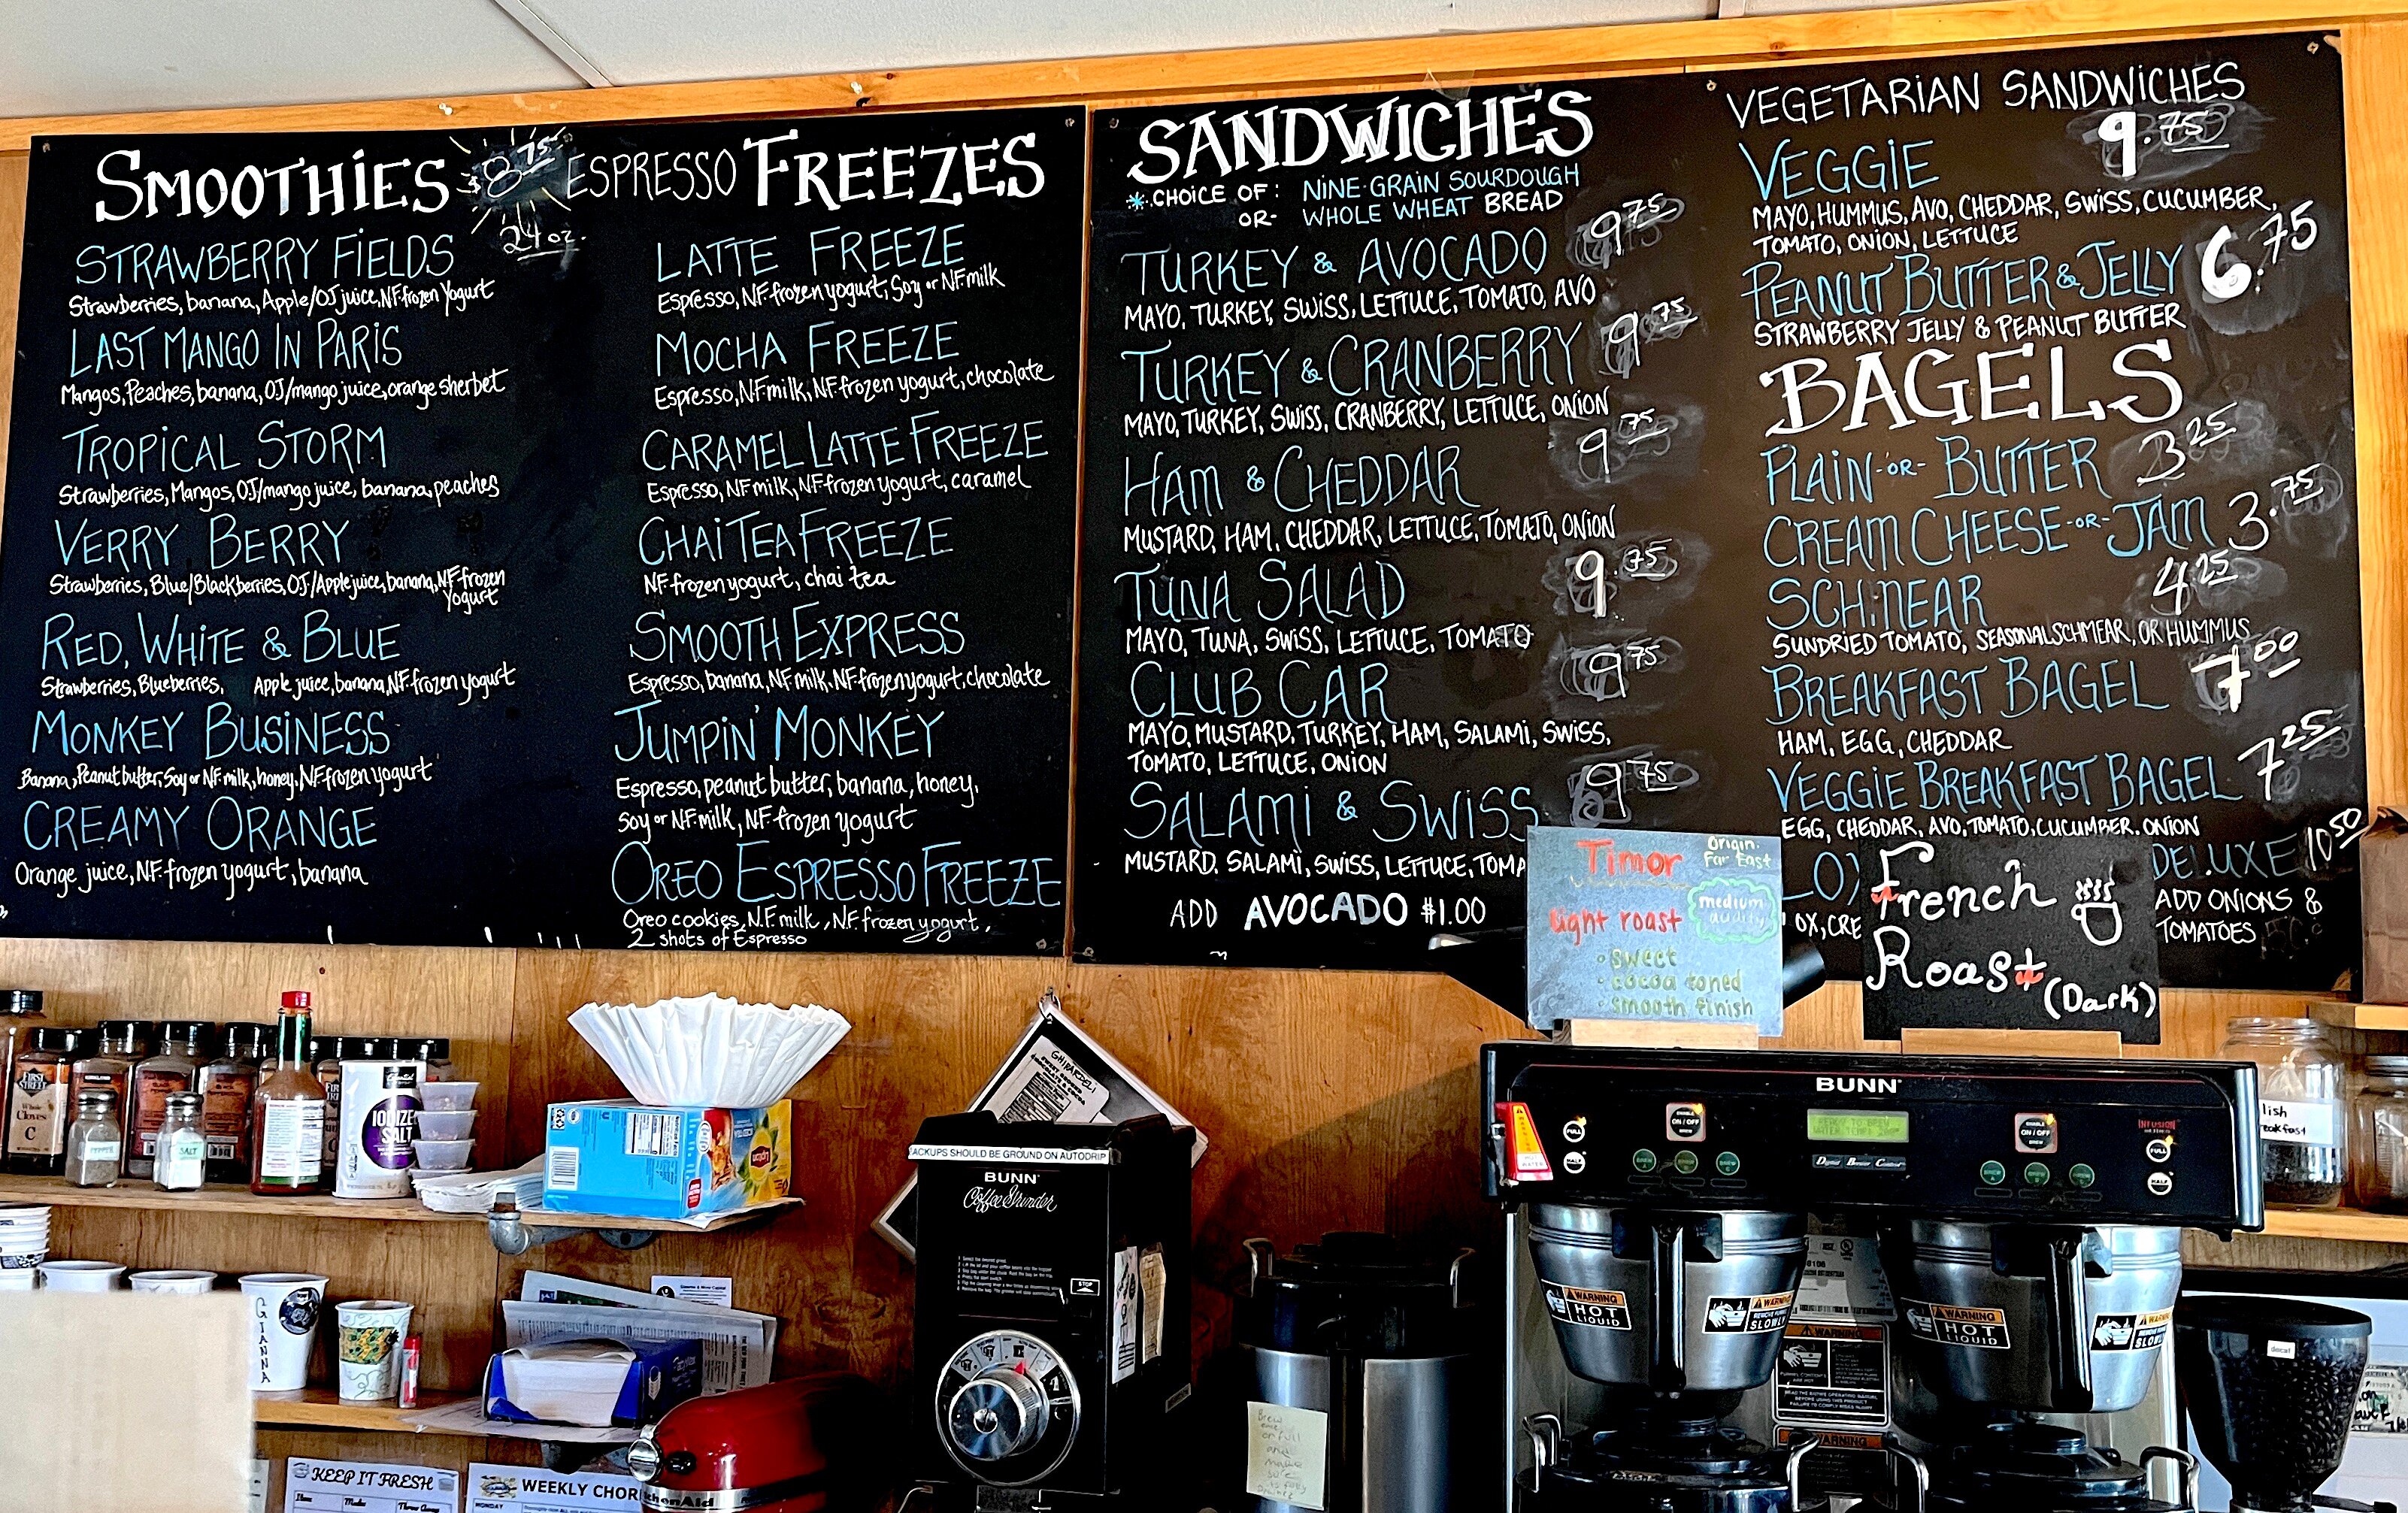 SMOOTHIES
$8.75
24 oz.
STRAWBERRY FIELDS
Strawberries, banana, Apple/OJ juice, NF frozen Yogurt
LAST MANGO IN PARIS
Mangos, Peaches, banana, OJ/mango juice, orange sherbet
TROPICAL STORM
Strawberries, Mangos, OJ/mango juice, banana, peaches
VERRY BERRY
Strawberries, Blue/Blackberries, OJ/Apple juice, banana, NF frozen
Yogurt
RED, WHITE & BLUE
Strawberries, Blueberries, Apple juice, banana, NF frozen yogurt
MONKEY BUSINESS
Banana, Peanut butter, Soy or NF milk, honey, NF frozen yogurt
CREAMY ORANGE
Orange juice, NF frozen yogurt, banana
ESPRESSO FREEZES
LATTE FREEZE
Espresso, NF frozen yogurt, Soy or NF milk
MOCHA FREEZE
Espresso, NF milk, NF frozen yogurt, chocolate
CARAMEL LATTE FREEZE
Espresso, NF milk, NF frozen yogurt, caramel
CHAI TEA FREEZE
NF frozen yogurt, chai tea
SMOOTH EXPRESS
Espresso, banana, NF milk, NF frozen yogurt, chocolate
JUMPIN' MONKEY
Espresso, peanut butter, banana, honey,
Soy or NF milk, NF frozen yogurt
OREO ESPRESSO FREEZE
Oreo cookies, N.F. milk, N.F. frozen yogurt,
2 shots of Espresso
SANDWICHES
* CHOICE OF: NINE GRAIN SOURDOUGH
OR- WHOLE WHEAT BREAD
TURKEY & AVOCADO 9.75
MAYO, TURKEY, SWISS, LETTUCE, TOMATO, AVO
TURKEY & CRANBERRY 9.75
MAYO, TURKEY, SWISS, CRANBERRY, LETTUCE, ONION
HAM & CHEDDAR 9.75
MUSTARD, HAM, CHEDDAR, LETTUCE, TOMATO, ONION
TUNA SALAD 9.75
MAYO, TUNA, SWISS, LETTUCE, TOMATO
CLUB CAR 9.75
MAYO, MUSTARD, TURKEY, HAM, SALAMI, SWISS,
TOMATO, LETTUCE, ONION
SALAMI & SWISS 9.75
MUSTARD, SALAMI, SWISS, LETTUCE, TOMA
ADD AVOCADO $1.00
VEGETARIAN SANDWICHES
VEGGIE 9.75
MAYO, HUMMUS, AVO, CHEDDAR, SWISS, CUCUMBER,
TOMATO, ONION, LETTUCE
PEANUT BUTTER & JELLY 6.75
STRAWBERRY JELLY & PEANUT BUTTER
BAGELS
PLAIN -OR- BUTTER 3.25
CREAM CHEESE -OR- JAM 3.75
SCHMEAR 4.25
SUNDRIED TOMATO, SEASONAL SCHMEAR, OR HUMMUS
BREAKFAST BAGEL 7.00
HAM, EGG, CHEDDAR
VEGGIE BREAKFAST BAGEL 7.25
EGG, CHEDDAR, AVO, TOMATO, CUCUMBER, ONION
LOX DELUXE 10.50
LOX, CRE ADD ONIONS &
TOMATOES
Timor
Origin:
Far East
medium
acidity
light roast
• sweet
• cocoa toned
• smooth finish
French
Roast (Dark)
FIRST STREET
Whole
Cloves
C
KIRKLAND
PEPPER
SALT
IODIZED
SALT
Lipton
ICED TEA
GHIRARDELLI
BACKUPS SHOULD BE GROUND ON AUTODRIP
BUNN
Coffee Grinder
STOP
BUNN
WARNING
HOT WATER
FULL
HALF
ON / OFF
BREW
BREW A
BREW B
BREW C
Digital Brewer Control
ENABLE
ON / OFF
BREW
INFUSION
FULL
HALF
lish
eakfast
WARNING
HOT
LIQUID
WARNING
REMOVE FUNNEL
SLOWLY
WARNING
WARNING
HOT
LIQUID
WARNING
REMOVE FUNNEL
SLOWLY
WARNING
decaf
GIANNA
Brew
one
or full
and
make
sure
is fully
drained
KEEP IT FRESH
Item Made Throw Away
WEEKLY CHOR
MONDAY
KitchenAid